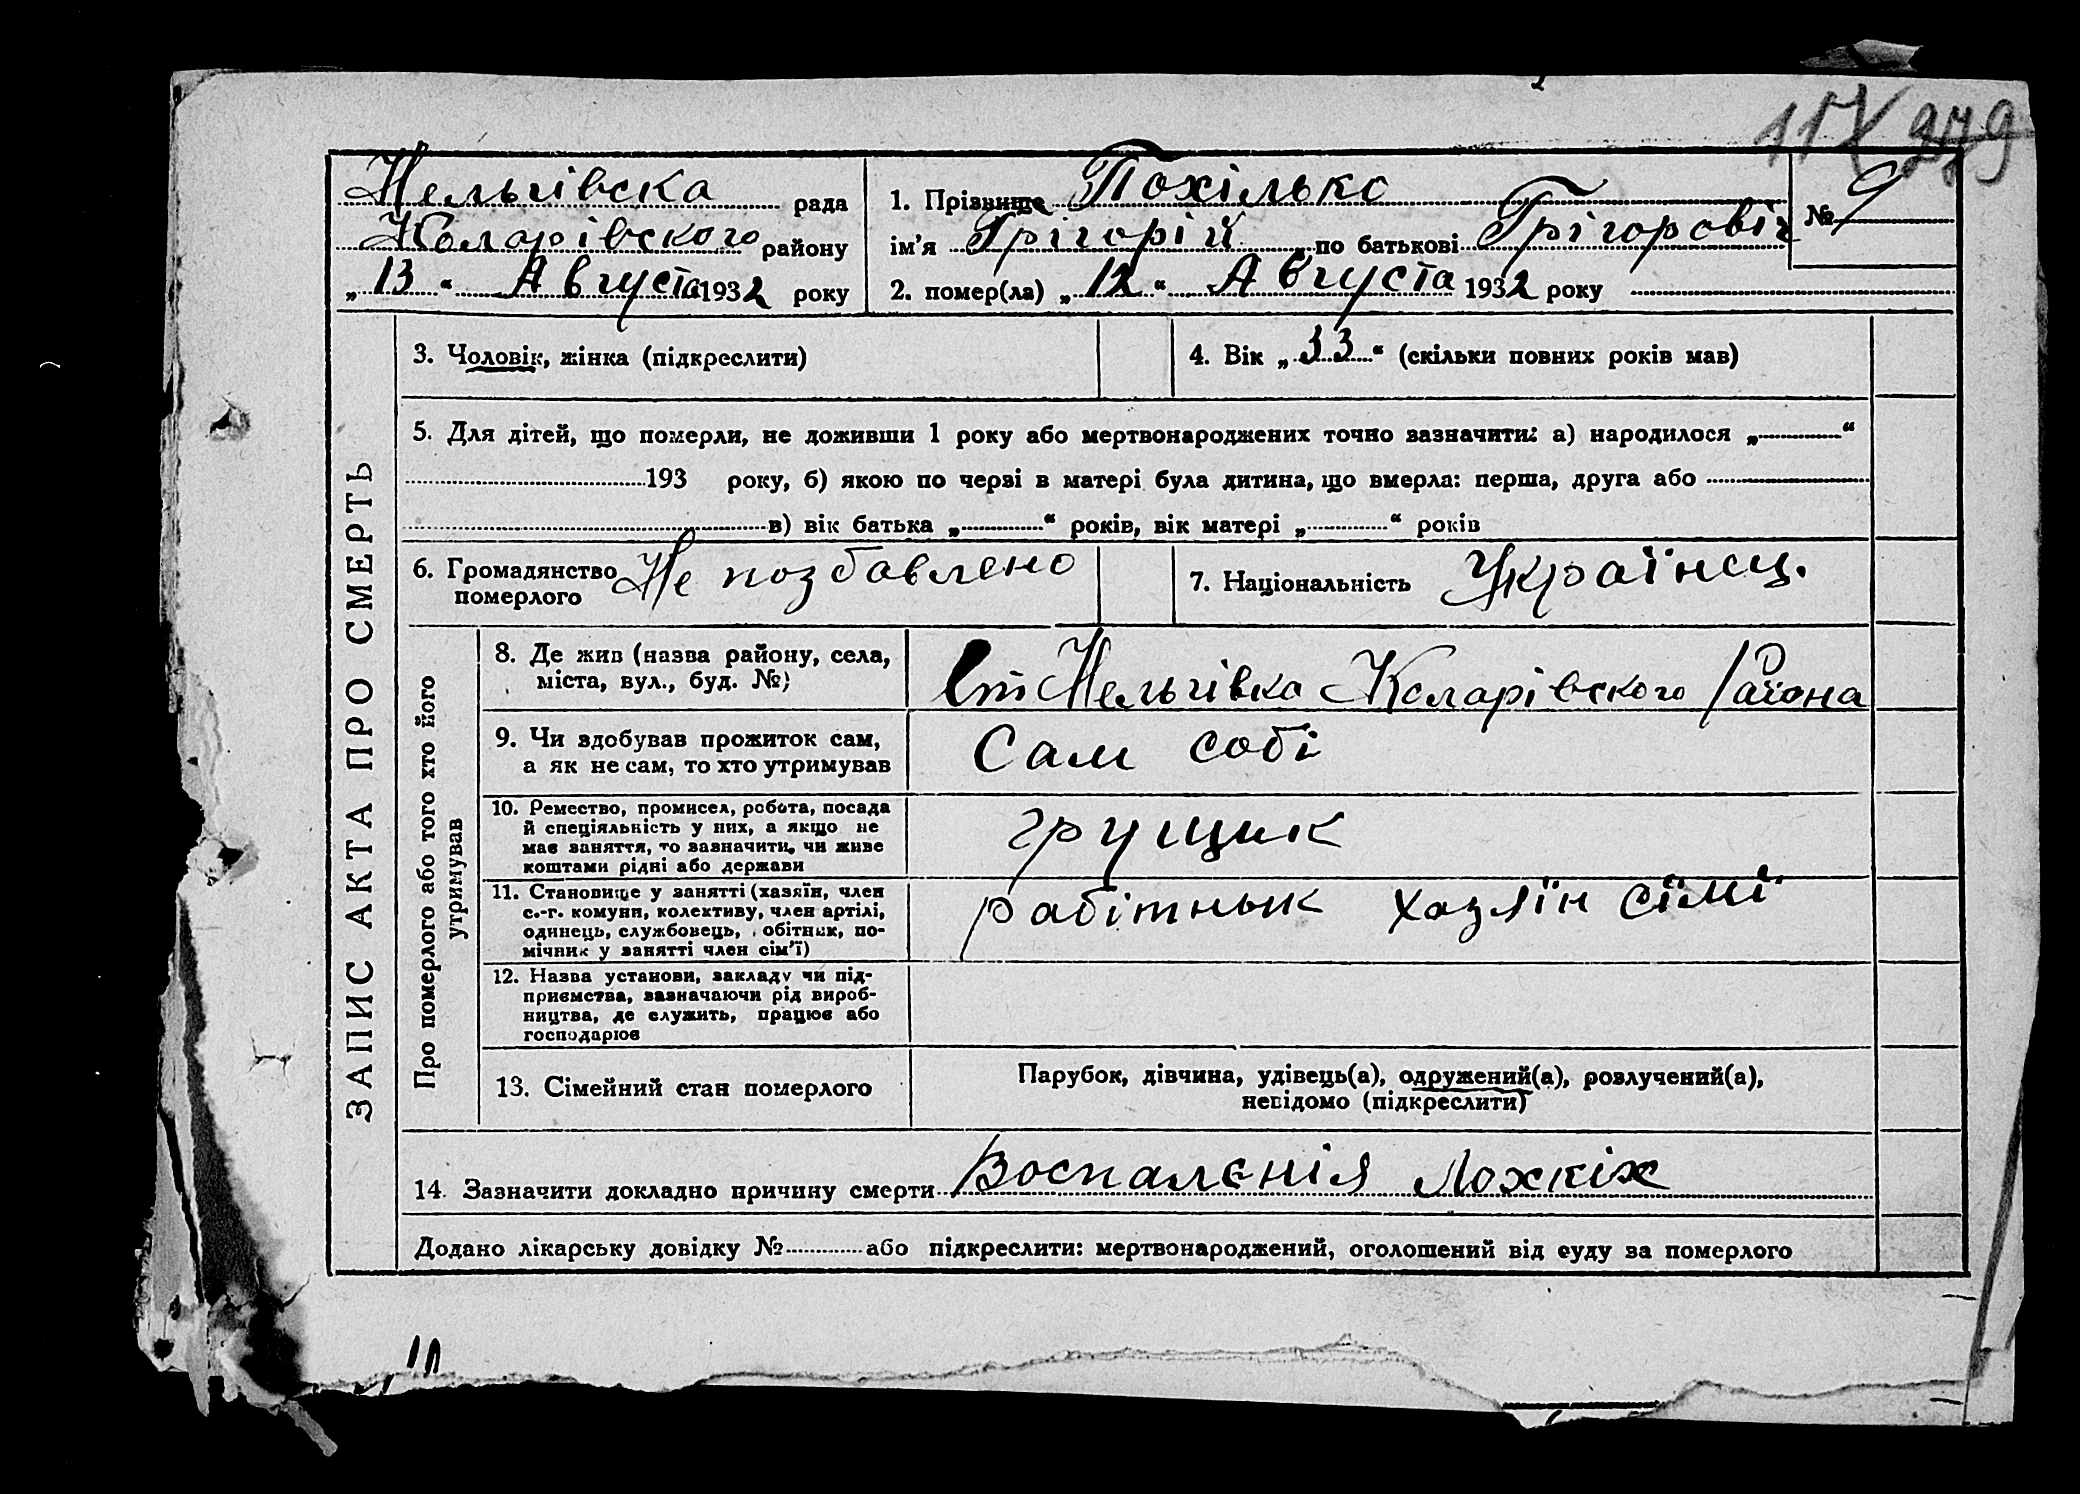 279
Нельгівска рада
Коларівского району
„13“ Августа 1932 року
1. Прізвище Похілько
ім’я Григорій по батькові Грігоровіч
№ 9
2. помер(ла) „12“ Августа 1932 року
ЗАПИС АКТА ПРО СМЕРТЬ
3. Чоловік, жінка (підкреслити)
4. Вік „33“ (скільки повних років мав)
5. Для дітей, що померли, не доживши 1 року або мертвонароджених точно зазначити: а) народилося „ “
193 року, б) якою по черзі в матері була дитина, що вмерла: перша, друга або
в) вік батька „ “ років, вік матері „ “ років
6. Громадянство Не позбавлено
померлого
7. Національність Українец.
Про померлого або того хто його
утримував
8. Де жив (назва району, села,
міста, вул., буд. №)
Ст Нельгівка Коларівского Района
9. Чи здобував прожиток сам,
а як не сам, то хто утримував
Сам собі
10. Ремество, промисел, робота, посада
й спеціяльність у них, а якщо не
має заняття, то зазначити, чи живе
коштами рідні або держави
грущик
11. Становище у занятті (хазяїн, член
с.-г. комуни, колективу, член артілі,
одинець, службовець, обітник, по-
мічник у занятті член сім’ї)
рабітнык хазяїн сїмї
12. Назва установи, закладу чи під-
приємства, зазначаючи рід вироб-
ництва, де служить, працює або
господарює
13. Сімейний стан померлого
Парубок, дівчина, удівець(а), одружений(а), розлучений(а),
невідомо (підкреслити)
14. Зазначити докладно причину смерти Воспалєнія Лохкіх
Додано лікарську довідку № або підкреслити: мертвонароджений, оголошений від суду за померлого